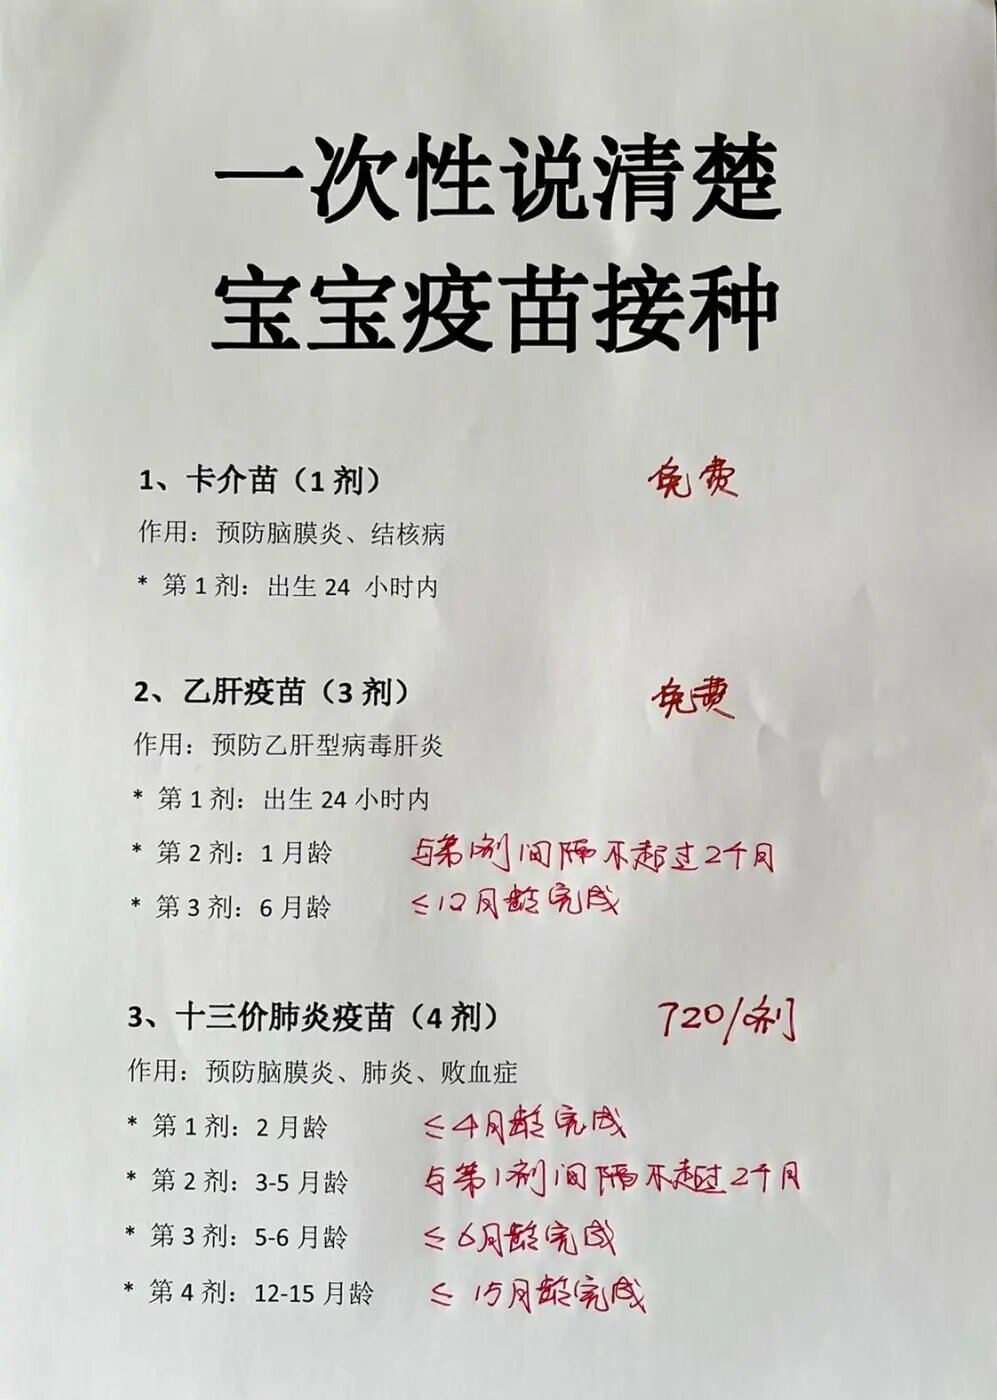 一次性说清楚
宝宝疫苗接种
1、卡介苗（1 剂） 免费
作用：预防脑膜炎、结核病
* 第 1 剂：出生 24 小时内
2、乙肝疫苗（3 剂） 免费
作用：预防乙肝型病毒肝炎
* 第 1 剂：出生 24 小时内
* 第 2 剂：1 月龄 与第1剂间隔不超过2个月
* 第 3 剂：6 月龄 ≤12月龄完成
3、十三价肺炎疫苗（4 剂） 720/剂
作用：预防脑膜炎、肺炎、败血症
* 第 1 剂：2 月龄 ≤4月龄完成
* 第 2 剂：3-5 月龄 与第1剂间隔不超过2个月
* 第 3 剂：5-6 月龄 ≤6月龄完成
* 第 4 剂：12-15 月龄 ≤15月龄完成